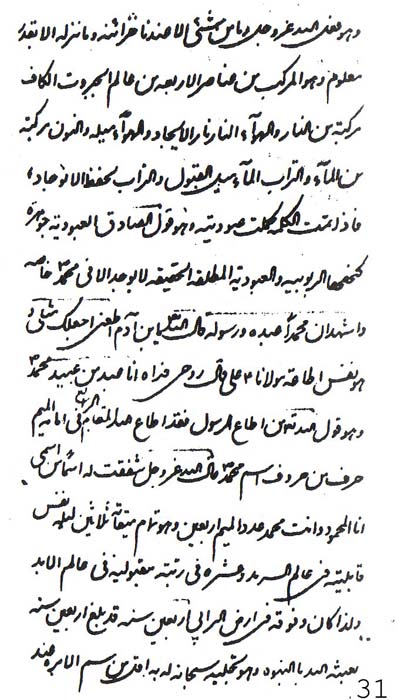 وهو معنى الله عز وجل وما من شئ الا عندنا خزائنه وما ننزله الا بقدر
معلوم وهو المركب من عناصر الاربعه من عالم الجبروت الكاف
مركبة من النار والهوآء النار نار الايجاد والهوآء ميله والنون مركبة
من المآء والتراب المآء ميل القبول والتراب لحفظ الانوجاد
فاذا تمت الكلمة كملت عبوديته وهو قول الصادق العبودية جوهرة
كنهها الربوبيه والعبودية المطلقة الحقيقه لا يوجد الا في محمد خاصه
واشهد ان محمداً عبده ورسوله قال الله يابن آدم اطعني اجعلك مثلي و
هو نفس اطاعة مولانا على قال روحى فداه انا عبد من عبيد محمد
وهو قول الله من اطاع الرسول فقد اطاع الله المقام الرابع في الميم
حرف من حروف اسم محمد قال الله عز وجل شققت له اسماً من اسمى
انا المحمود وانت محمد عدد الميم اربعين وهو تمام ميقات ثلاثين ليله نفس
قابليته في عالم السرمد وعشره في رتبة مقبوليه في عالم الابد
ولذا كان وقوفه في ارض اربعين سنه قد بلغ اربعين سنه
بعثه الله بالنبوه وهو تجليه سبحانه له به من اسم الا عند
31